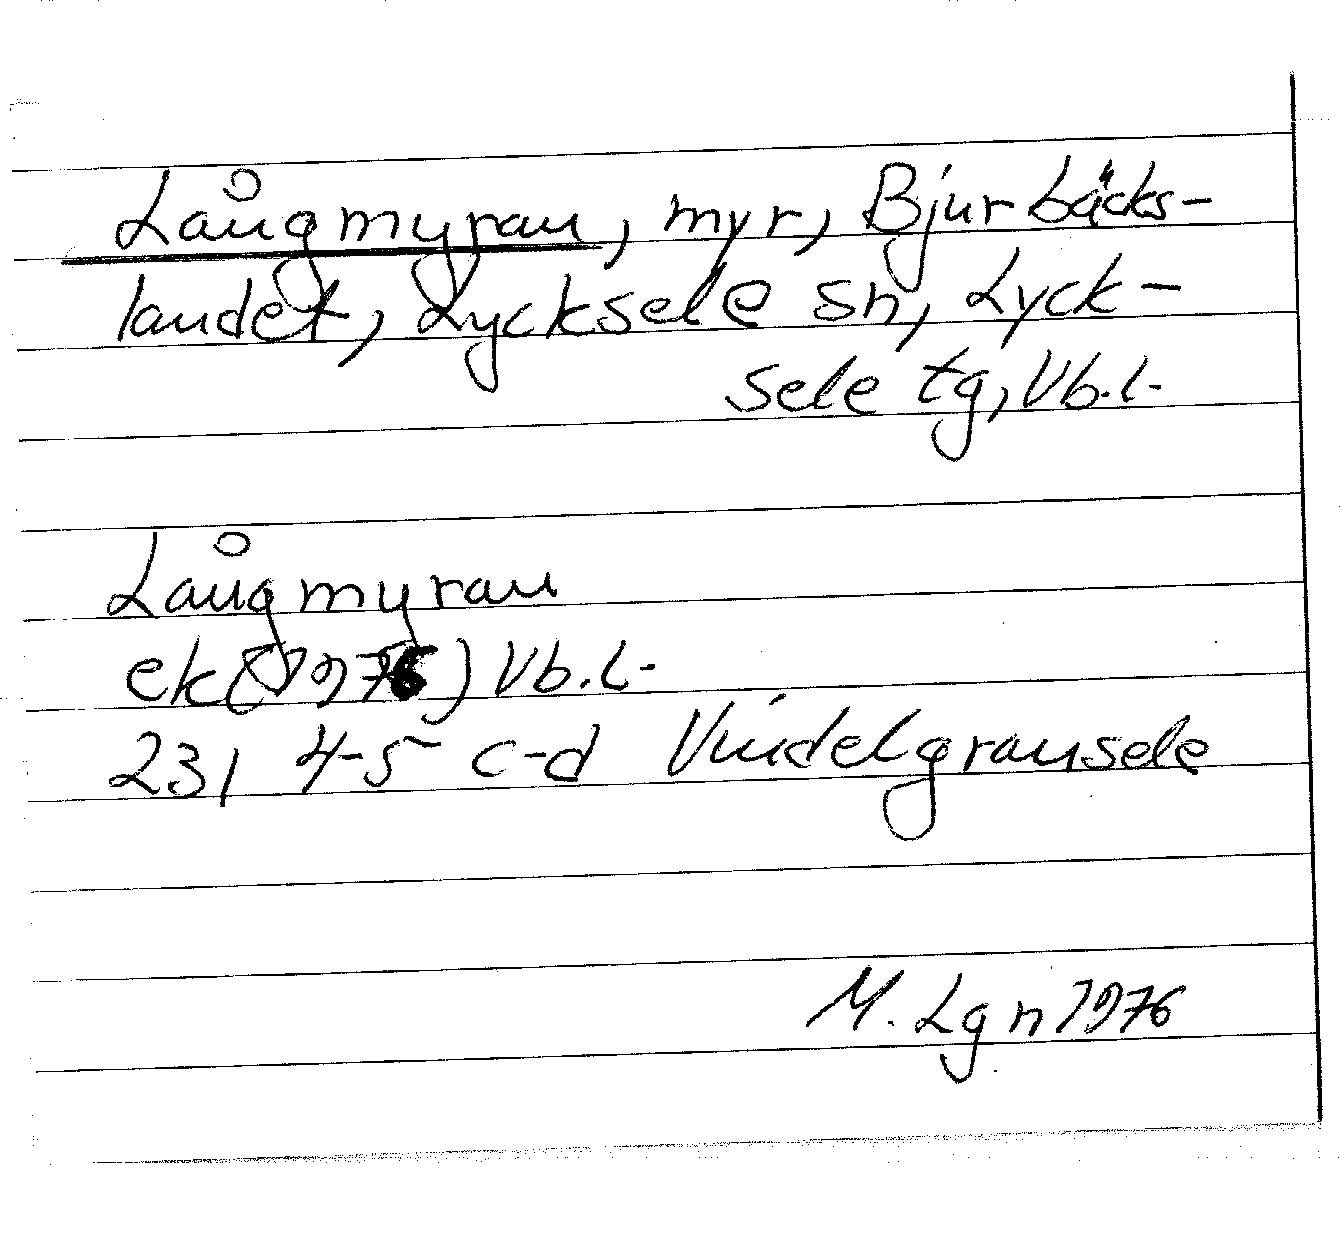 Långmyran, myr, Bjurbäcks-
landet, Lycksele sn, Lyck-
sele tg, Vb.l.
Långmyran
ek (1976) Vb.l.
231 4-5 c-d Vindelgransele
M. Lgn 1976